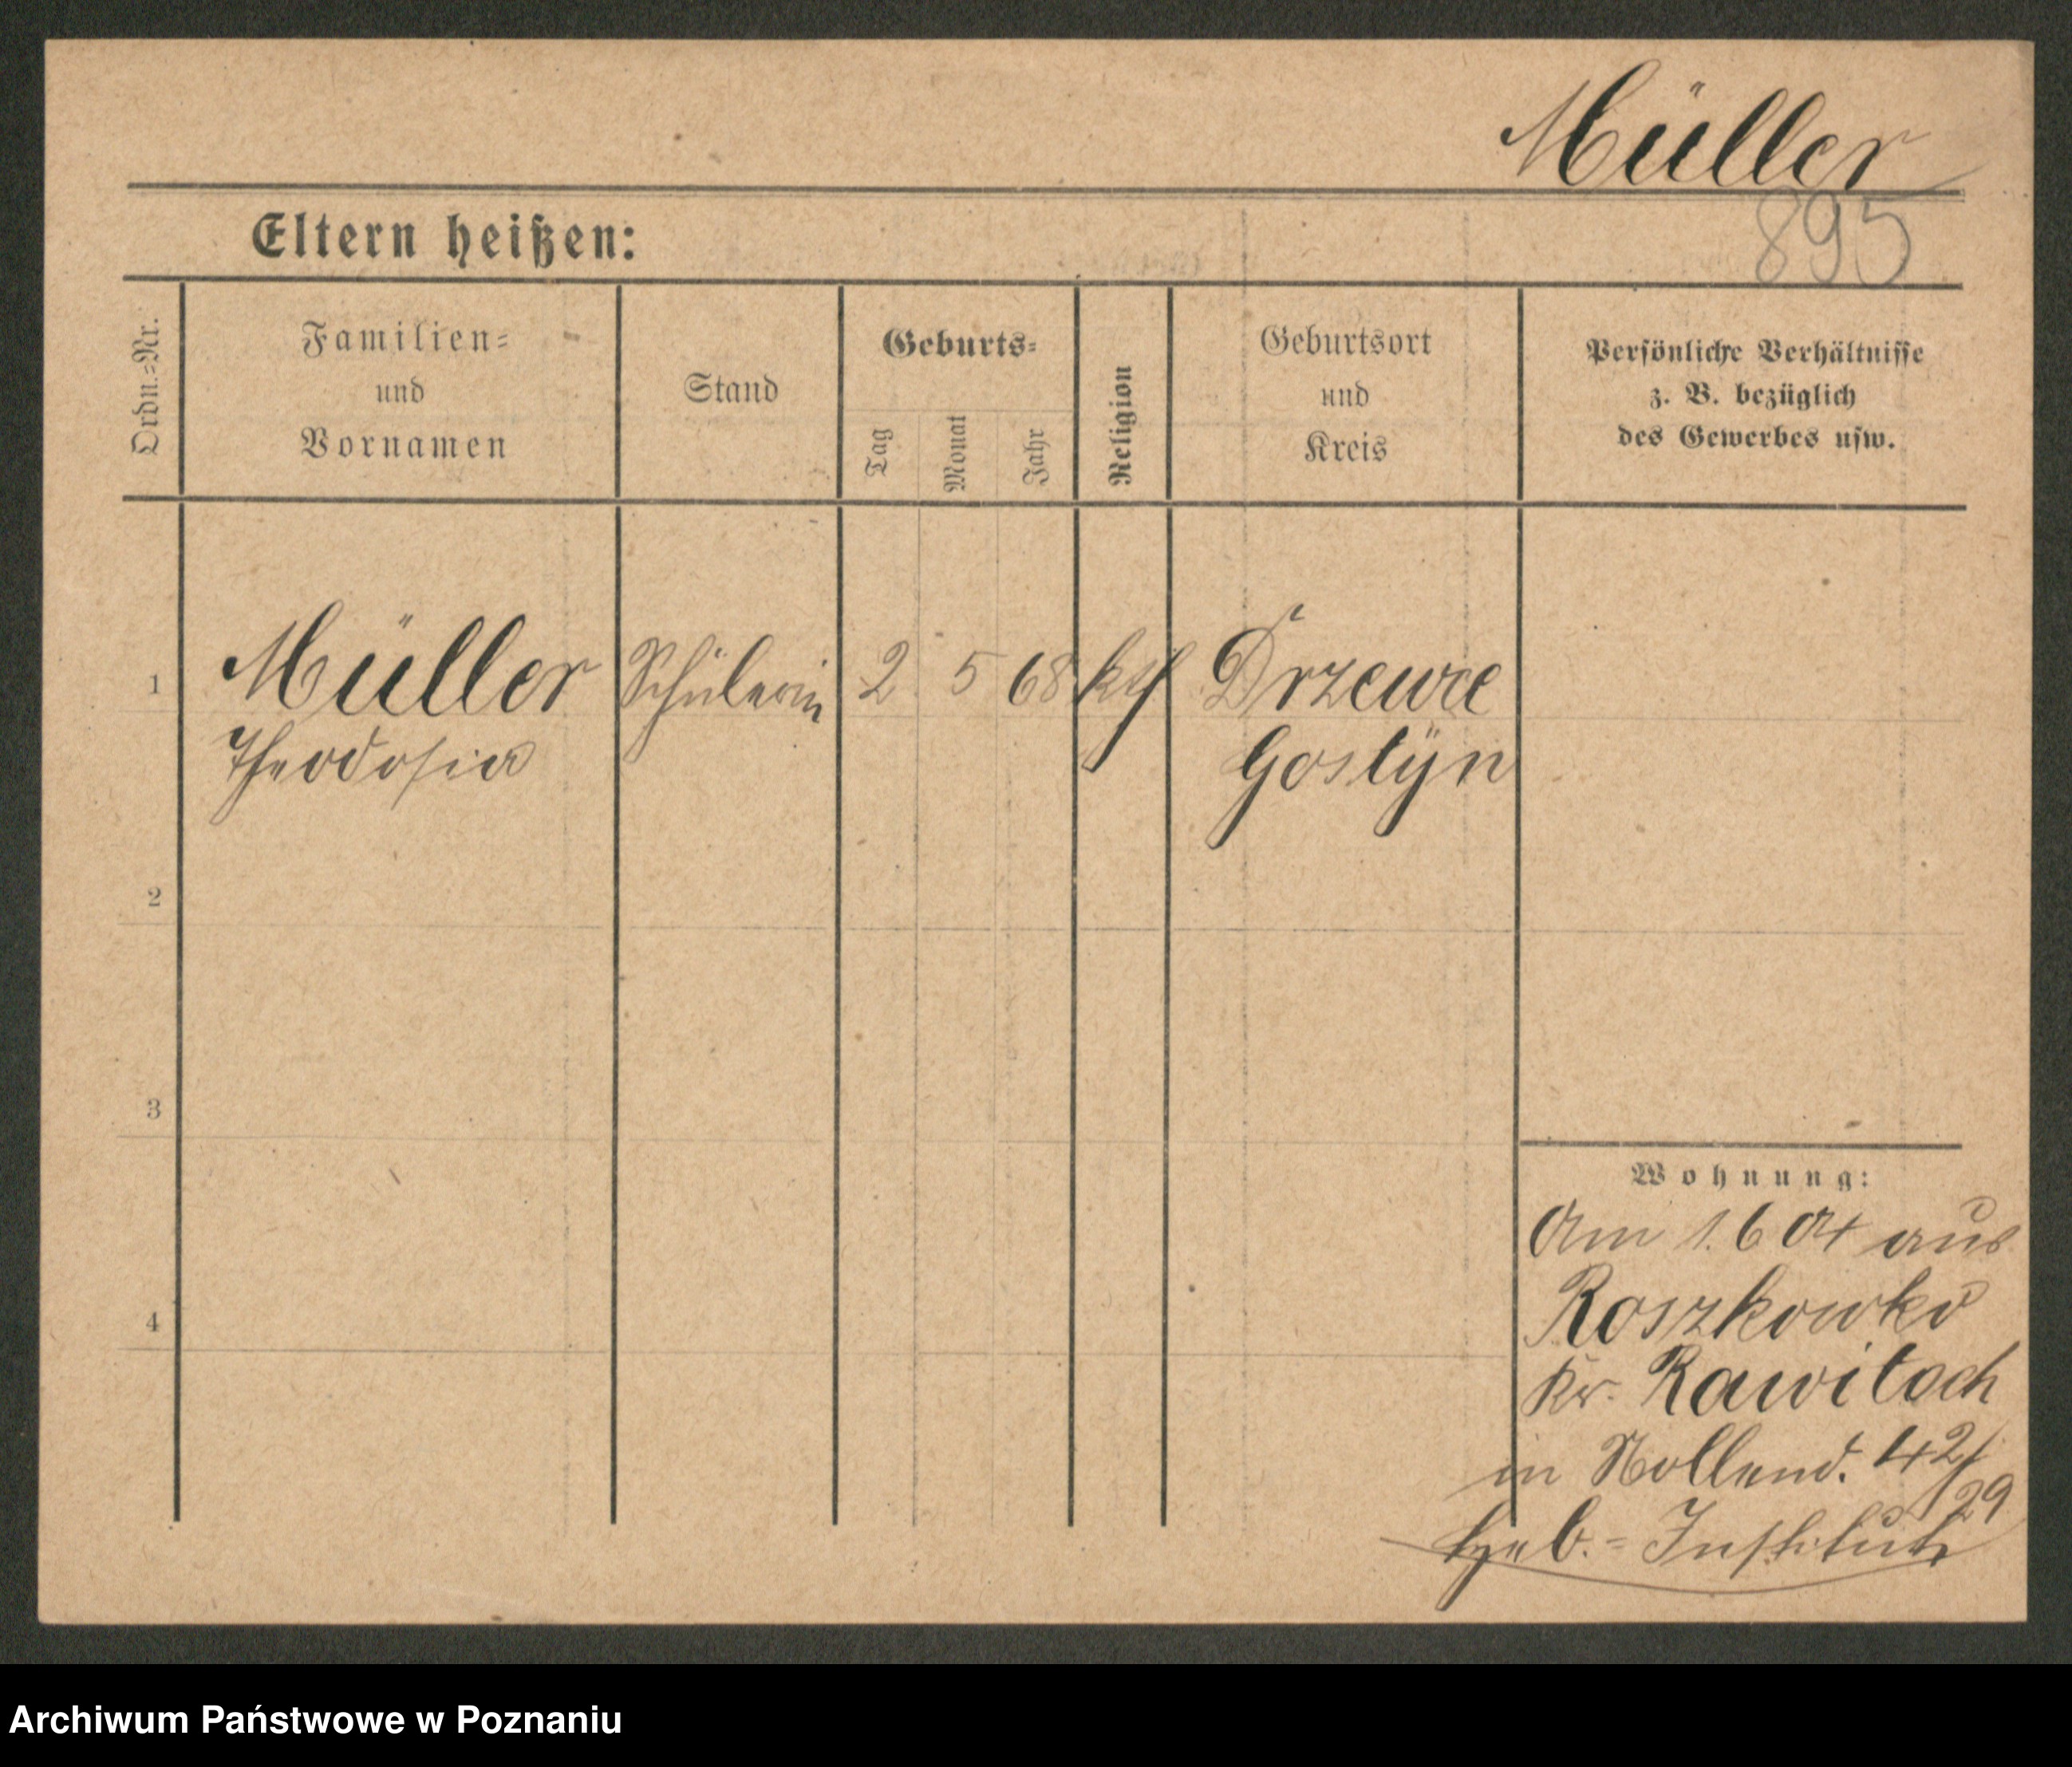 Müller
895
Eltern heißen:
Ordn.=Nr.
Familien=
und
Vornamen
Stand
Geburts=
Tag
Monat
Jahr
Religion
Geburtsort
und
Kreis
Persönliche Verhältnisse
z. B. bezüglich
des Gewerbes usw.
1 Müller Schülerin 2 5 68 kth Drzewce
Theodosia Gostÿn
2
3
4
Wohnung:
Am 1. 6 04 aus
Roszkowko
Kr. Rawitsch
in Nollend. 42/
29
Heb.=Institut
Archiwum Państwowe w Poznaniu